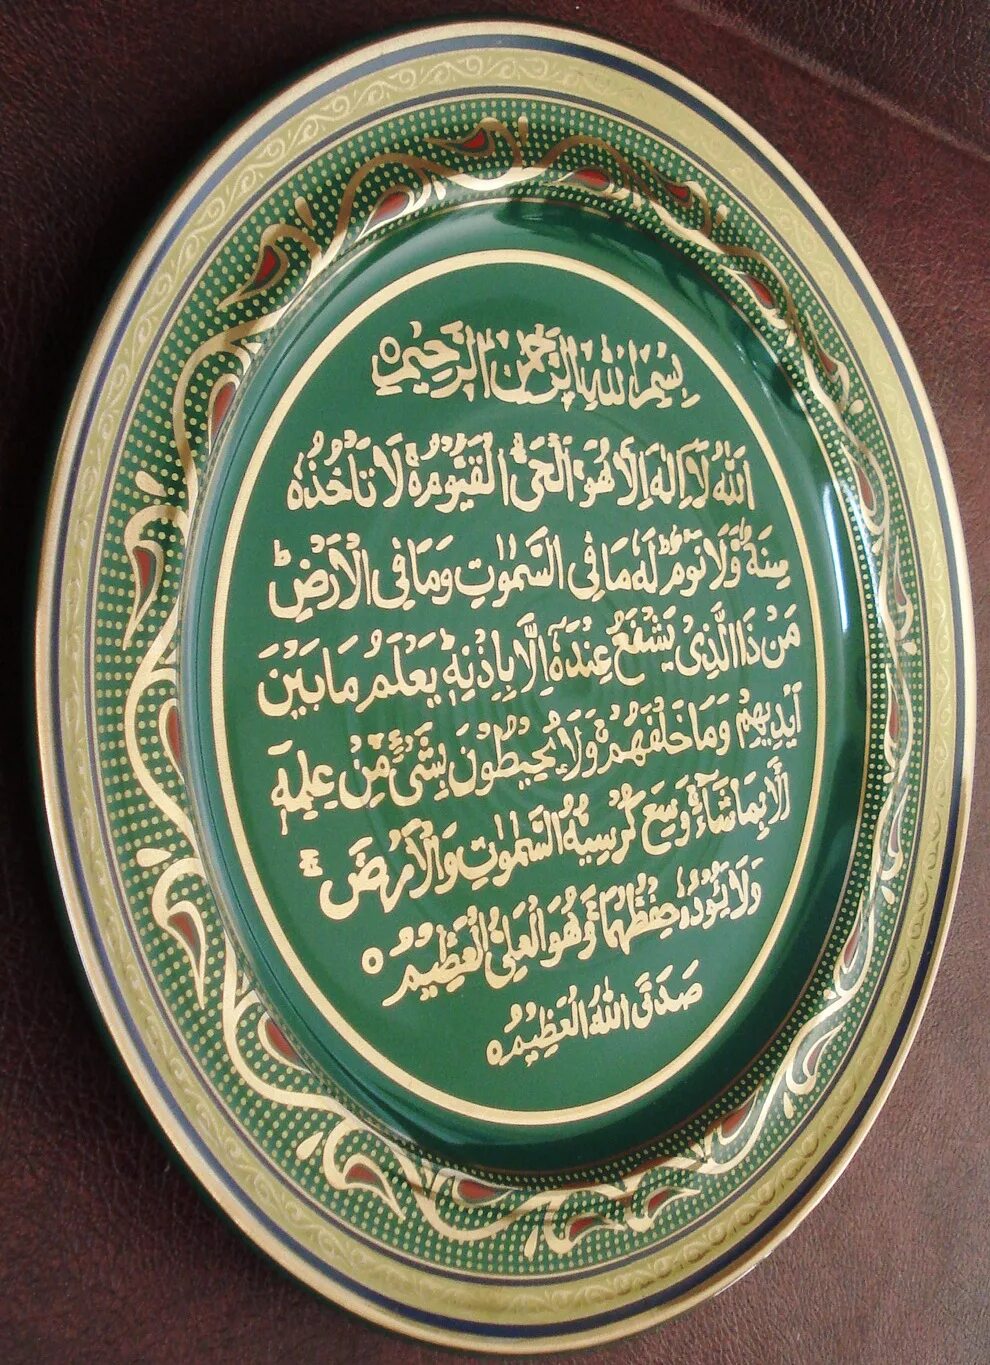 بِسْمِ اللهِ الرَّحْمٰنِ الرَّحِيْمِ ○
اَللهُ لَا اِلٰهَ اِلَّا هُوَ الْحَىُّ الْقَيُّوْمُ لَا تَاْخُذُهٗ
سِنَةٌ وَّلَا نَوْمٌ ؕ لَهٗ مَا فِى السَّمٰوٰتِ وَمَا فِى الْاَرْضِ ؕ
مَنْ ذَا الَّذِىْ يَشْفَعُ عِنْدَهٗٓ اِلَّا بِاِذْنِهٖ ؕ يَعْلَمُ مَا بَيْنَ
اَيْدِيْهِمْ وَمَا خَلْفَهُمْ ۚ وَلَا يُحِيْطُوْنَ بِشَىْءٍ مِّنْ عِلْمِهٖٓ
اِلَّا بِمَا شَآءَ ۚ وَسِعَ كُرْسِيُّهُ السَّمٰوٰتِ وَالْاَرْضَ ۚ
وَلَا يَئُوْدُهٗ حِفْظُهُمَا ۚ وَهُوَ الْعَلِىُّ الْعَظِيْمُ ○
صَدَقَ اللهُ الْعَظِيْمُ ○